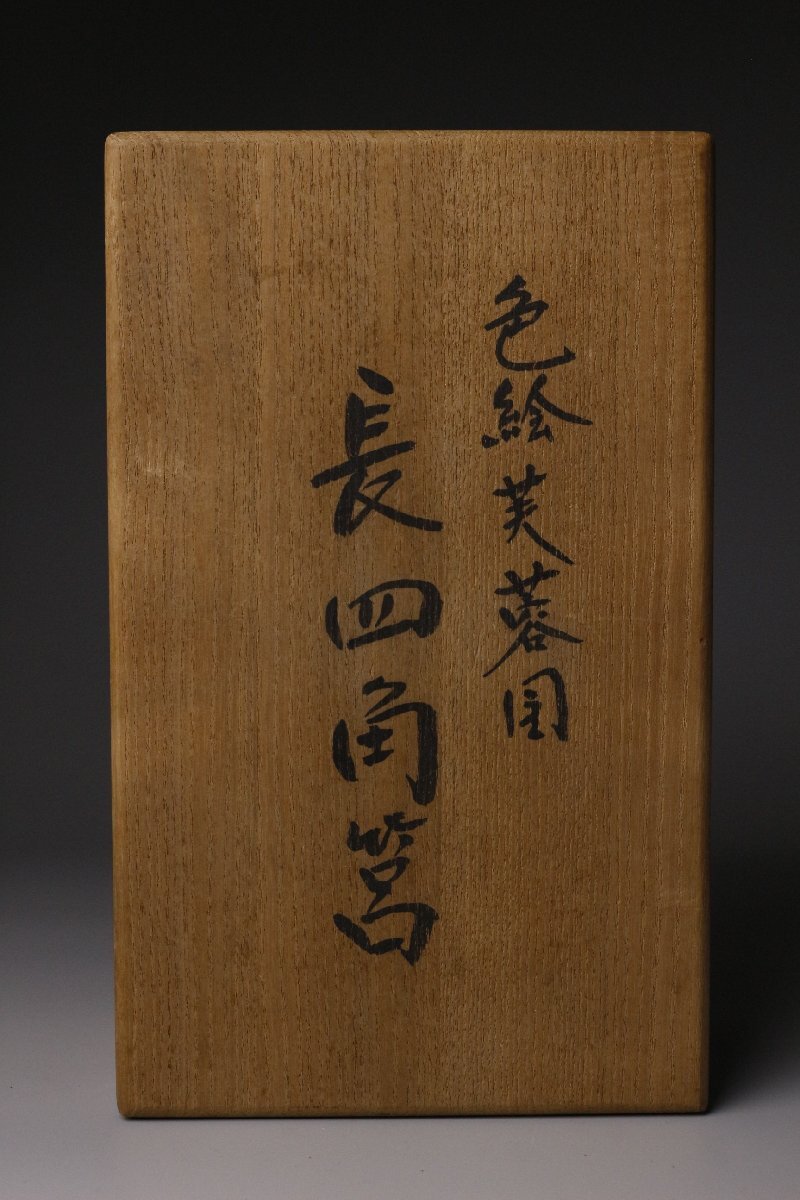 色絵芙蓉図
長四角筥